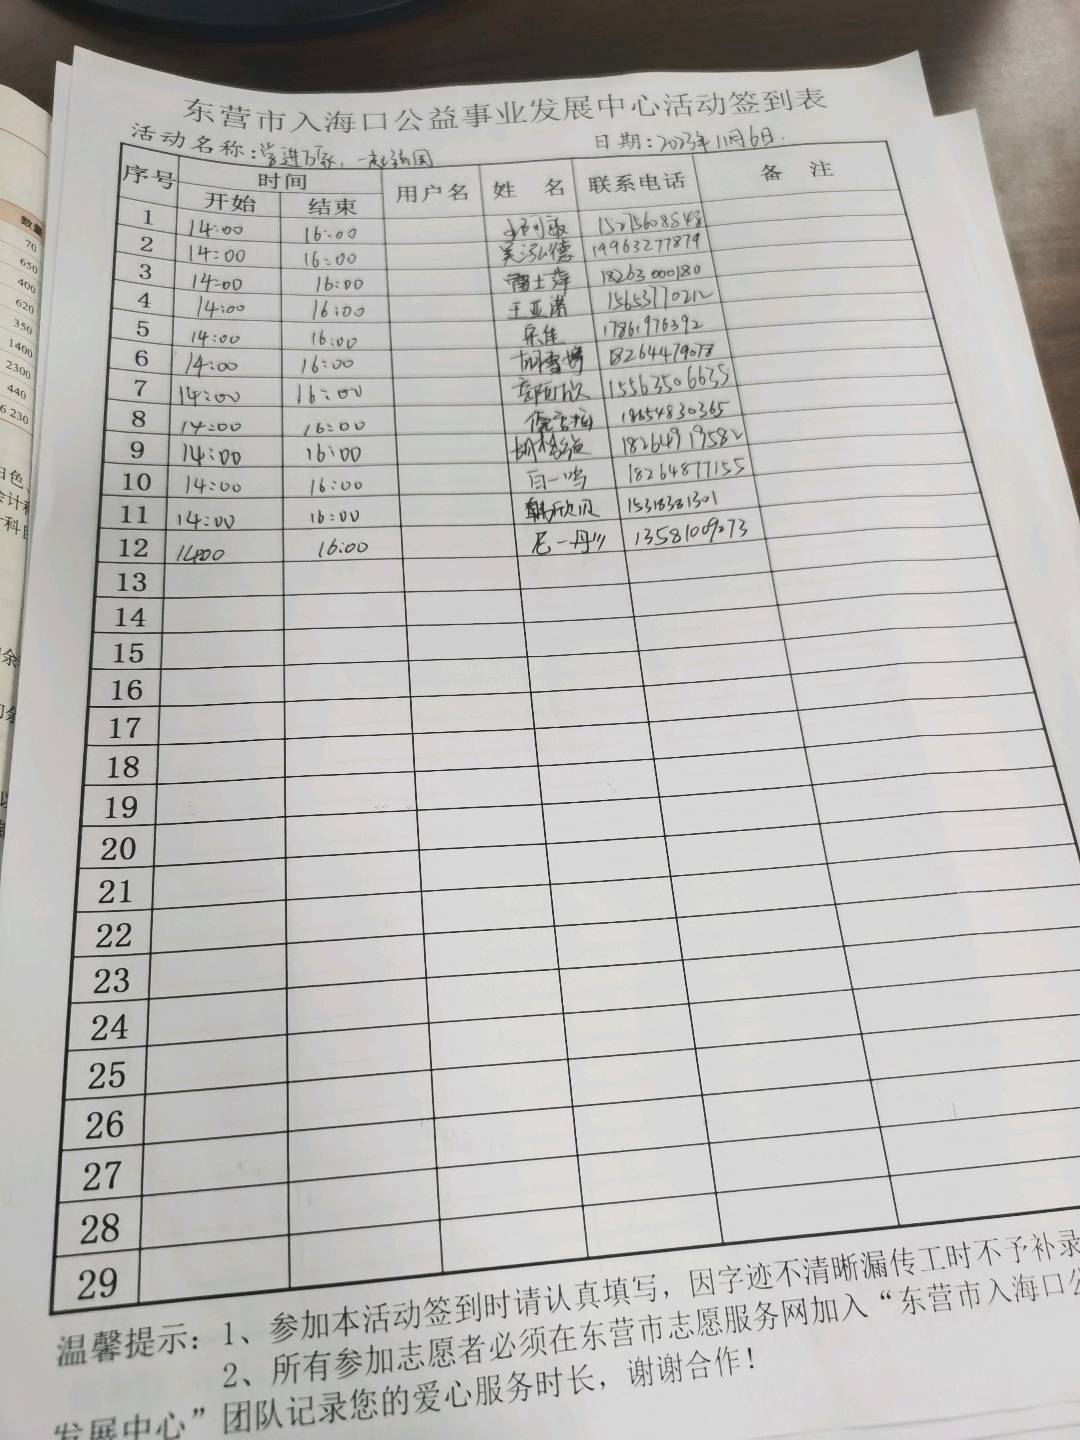 东营市入海口公益事业发展中心活动签到表
活动名称:学进万家,一起强国 日期:2023年11月6日.
序号 时间 用户名 姓 名 联系电话 备 注
开始 结束
1 14:00 16:00
2 14:00 16:00 吴泓德 19963277879
3 14:00 16:00 雷士萍 18263000180
4 14:00 16:00 于亚潇 15653770212
5 14:00 16:00 宋佳 17861976392
6 14:00 16:00 胡雪婷 18264479078
7 14:00 16:00 15563506635
8 14:00 16:00 18654830365
9 14:00 16:00 18264919582
10 14:00 16:00 白一鸣 18264877155
11 14:00 16:00 韩欣贝 15318381301
12 14:00 16:00 尼一丹 13581009073
13
14
15
16
17
18
19
20
21
22
23
24
25
26
27
28
29
温馨提示:1、参加本活动签到时请认真填写,因字迹不清晰漏传工时不予补录
2、所有参加志愿者必须在东营市志愿服务网加入“东营市入海口公
发展中心”团队记录您的爱心服务时长,谢谢合作!
数量
70
650
400
620
350
1400
2300
440
6 230